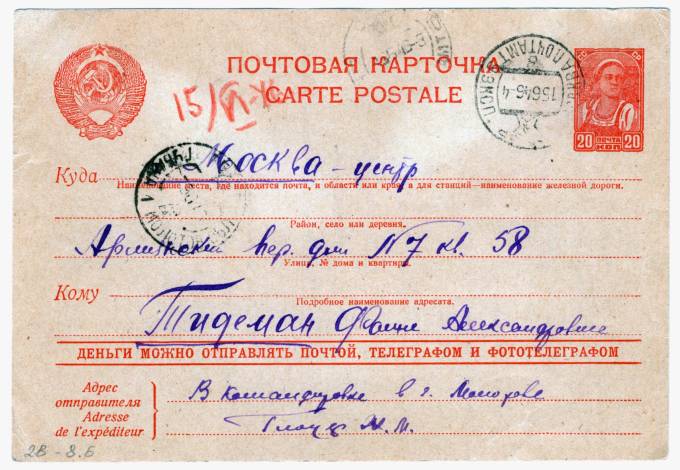 ПОЧТОВАЯ КАРТОЧКА
CARTE POSTALE
15/VI
СС СР
20 ПОЧТА 20
КОП
Куда Москва - центр
Наименование места, где находится почта, и области или края, а для станций—наименование железной дороги.
Район, село или деревня.
пер. дом N7 кв. 58
Улица, № дома и квартиры.
Кому
Подробное наименование адресата.
Тидеман Фаине Александровне
ДЕНЬГИ МОЖНО ОТПРАВЛЯТЬ ПОЧТОЙ, ТЕЛЕГРАФОМ И ФОТОТЕЛЕГРАФОМ
Адрес
отправителя
Adresse
de l'expéditeur
В командировке в г.
М.М.
2В - 8.Б